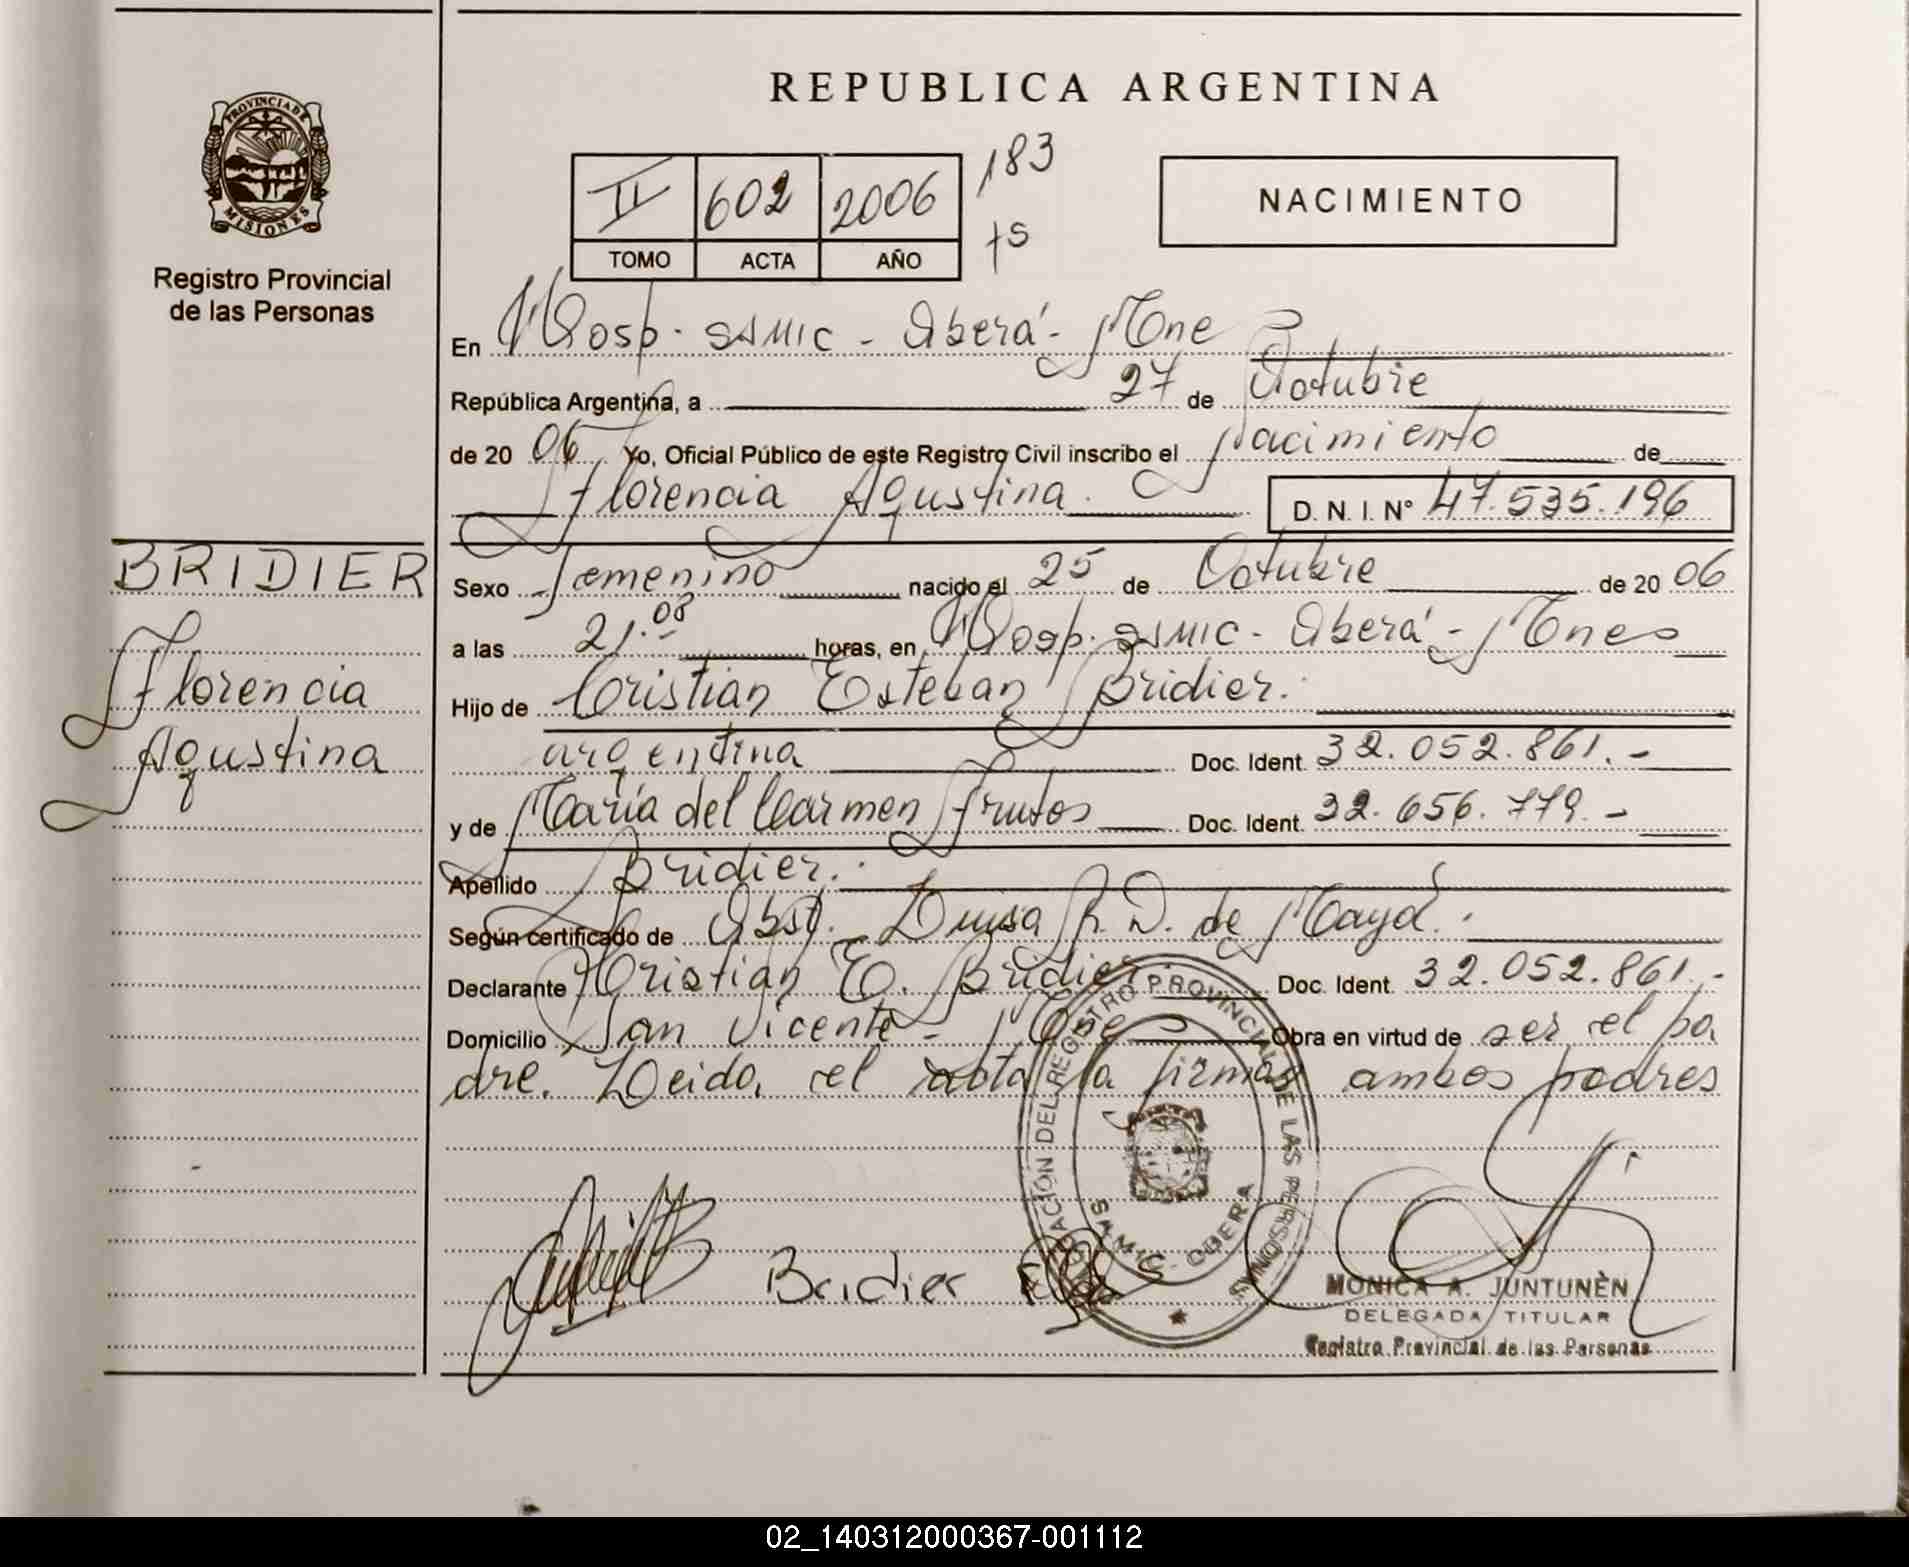 PROVINCIA DE
MISIONES
Registro Provincial
de las Personas
REPUBLICA ARGENTINA
II 602 2006 183
TOMO ACTA AÑO
NACIMIENTO
En Hosp. SAMIC - Oberá - Mnes
República Argentina, a 27 de Octubre
de 20 06 Yo, Oficial Público de este Registro Civil inscribo el Nacimiento de
Florencia Agustina. D. N. I. N° 47.535.196
BRIDIER
Florencia
Agustina
Sexo Femenino nacido el 25 de Octubre de 20 06
a las 21.08 horas, en Hosp. SAMIC - Oberá - Mnes
Hijo de Cristian Esteban Bridier.
argentina Doc. Ident. 32.052.861.-
y de María del Carmen Frutos Doc. Ident. 32.656.779.-
Apellido Bridier.
Según certificado de Obst. Luisa R. D. de
Declarante Cristian E. Bridier. Doc. Ident. 32.052.861.-
Domicilio San Vicente - Mnes Obra en virtud de ser el pa
dre. Leida el acta la firman ambos padres
DEL REGISTRO PROVINCIAL DE LAS PERSONAS
SAMIC - OBERA
Bridier
MONICA A. JUNTUNÈN
DELEGADA TITULAR
Registro Provincial de las Personas
02_140312000367-001112